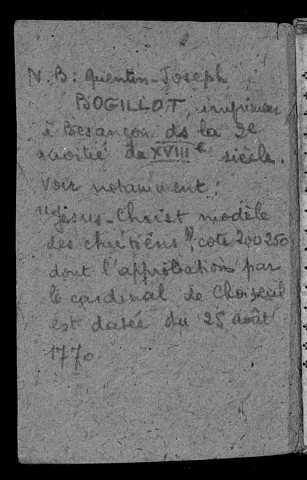 N.B: Quentin-Joseph
BOGILLOT, imprimeur
à Besançon ds la 2e
moitié du XVIIIe siècle.
Voir notamment :
"Jésus-Christ modèle
des chrétiens", cote 200250
dont l'approbation par
le cardinal de Choiseul
est datée du 25 août
1770